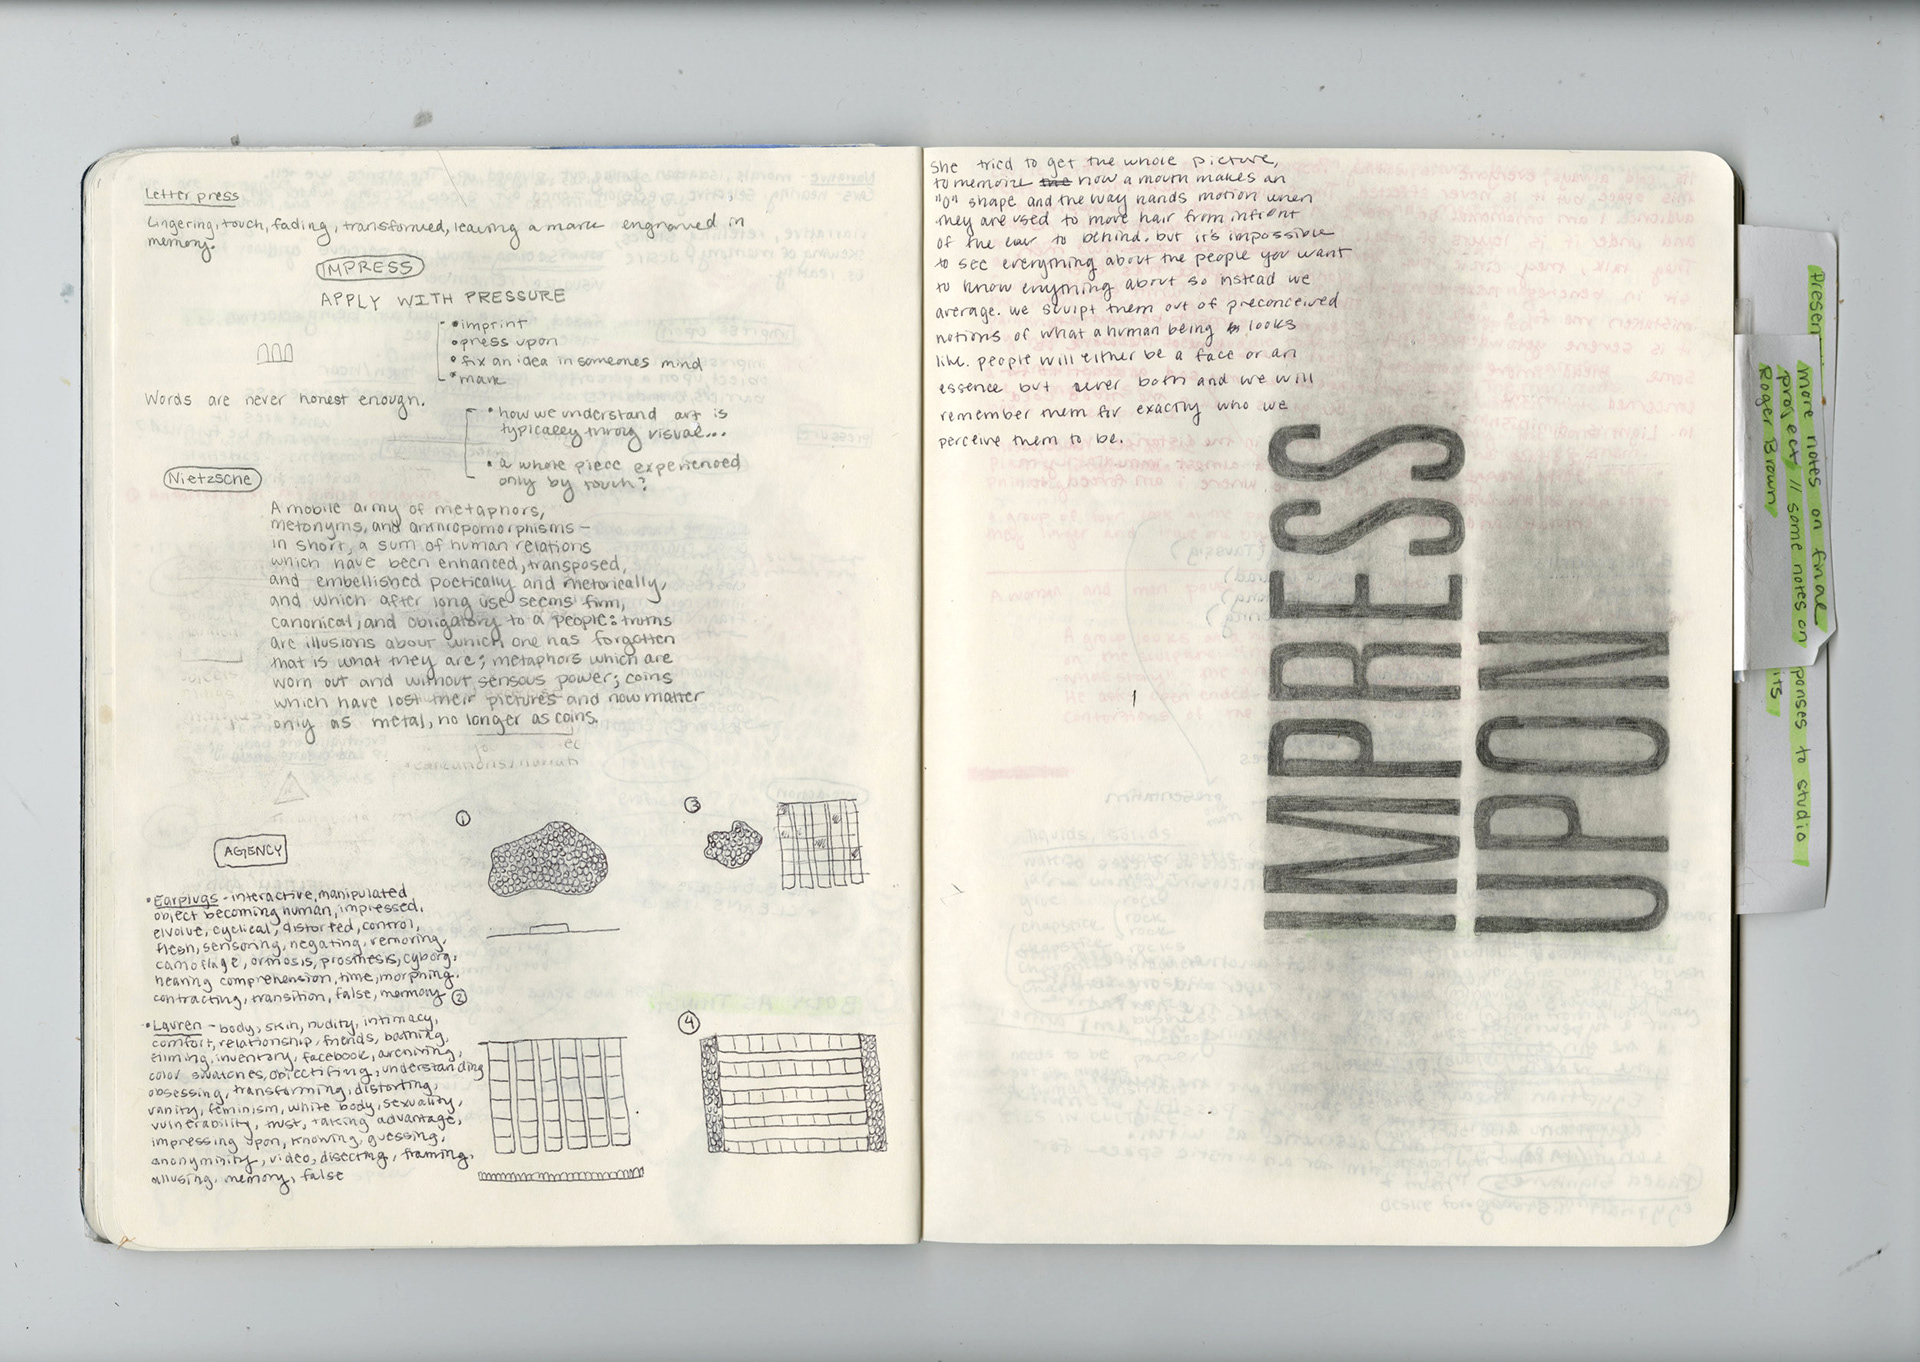 Letter press
Lingering, touch, fading, transformed, leaving a mark engraved in
memory.
IMPRESS
APPLY WITH PRESSURE
• imprint
• press upon
• fix an idea in someones mind
• mark
Words are never honest enough.
• how we understand art is
typically throug visual...
• a whole piece experienced
only by touch?
Nietzsche
A mobile army of metaphors,
metonyms, and anthropomorphisms –
in short, a sum of human relations
which have been enhanced, transposed,
and embellished poetically and rhetorically,
and which after long use seems firm,
canonical, and obligatory to a people: truths
are illusions about which one has forgotten
that is what they are; metaphors which are
worn out and without sensous power; coins
which have lost their pictures and now matter
only as metal, no longer as coins.
AGENCY
• Earplugs - interactive, manipulated
object becoming human, impressed,
elvolve, cyclical, distorted, control,
flesh, sensoring, negating, removing,
camoflage, ormosis, prosthesis, cyborg,
hearing comprehension, time, morphing,
contracting, transition, false, memory
• Lauren - body, skin, nudity, intimacy,
comfort, relationship, friends, bathing,
filming, inventory, facebook, archiving,
color swatches, objectifing, understanding
obsessing, transforming, distorting,
vanity, feminism, white body, sexuality,
vulnerability, trust, taking advantage,
impressing upon, knowing, guessing,
anonyminity, video, disecting, framing,
allusing, memory, false
1
2
3
4
She tried to get the whole picture,
to memorize the how a mouth makes an
"O" shape and the way hands motion when
they are used to move hair from infront
of the ear to behind. but it's impossible
to see everything about the people you want
to know enything about so instead we
average. we sculpt them out of preconceived
notions of what a human being looks
like. people will either be a face or an
essence but never both and we will
remember them for exactly who we
perceive them to be.
IMPRESS
UPON
Presen
more notes on final
project // some notes on
Roger Brown
ponses to studio
its